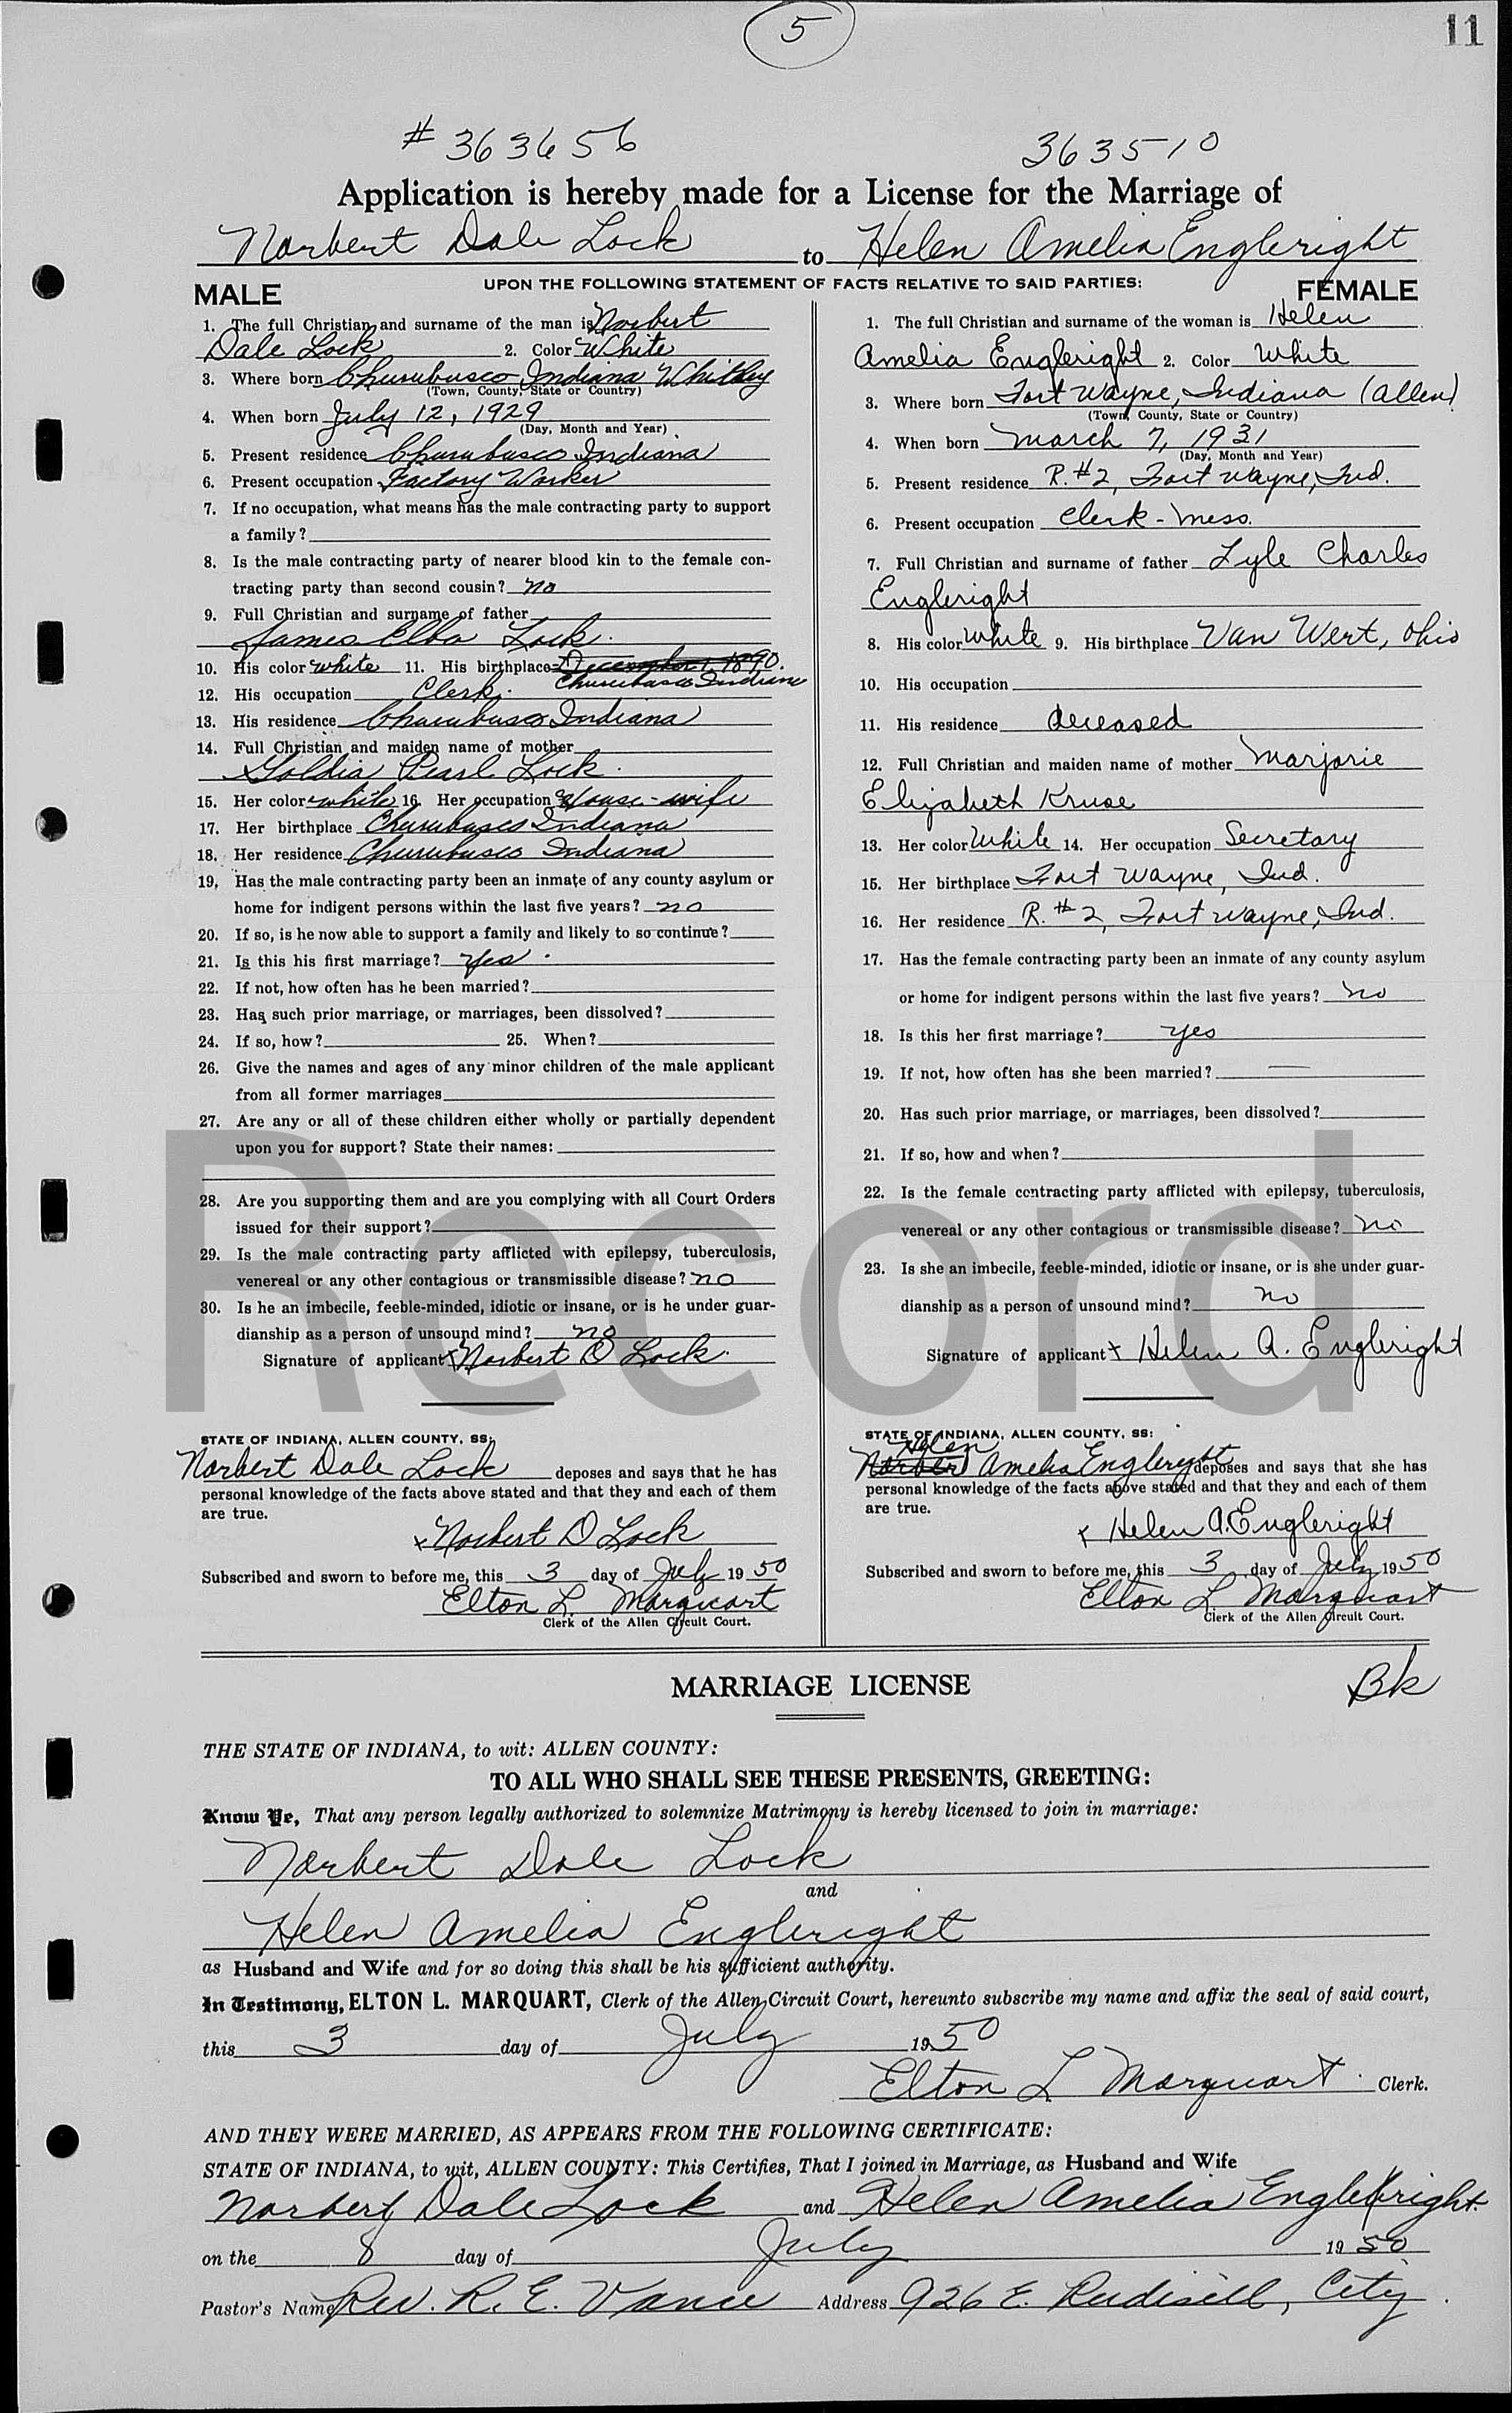 5
11
# 363656 363510
Application is hereby made for a License for the Marriage of
Norbert Dale Lock to Helen Amelia Engleright
UPON THE FOLLOWING STATEMENT OF FACTS RELATIVE TO SAID PARTIES:
MALE
1. The full Christian and surname of the man is Norbert
Dale Lock 2. Color White
3. Where born Churubusco Indiana Whitley
(Town, County, State or Country)
4. When born July 12, 1929
(Day, Month and Year)
5. Present residence Churubusco Indiana
6. Present occupation Factory Worker
7. If no occupation, what means has the male contracting party to support
a family?
8. Is the male contracting party of nearer blood kin to the female con-
tracting party than second cousin? no
9. Full Christian and surname of father
James Elba Lock.
10. His color white 11. His birthplace December 1, 1890.
Churubusco Indiana
12. His occupation Clerk.
13. His residence Churubusco Indiana
14. Full Christian and maiden name of mother
Goldia Pearl Lock.
15. Her color white 16. Her occupation House-wife
17. Her birthplace Churubusco Indiana
18. Her residence Churubusco Indiana
19. Has the male contracting party been an inmate of any county asylum or
home for indigent persons within the last five years? no
20. If so, is he now able to support a family and likely to so continue?
21. Is this his first marriage? yes.
22. If not, how often has he been married?
23. Has such prior marriage, or marriages, been dissolved?
24. If so, how? 25. When?
26. Give the names and ages of any minor children of the male applicant
from all former marriages
27. Are any or all of these children either wholly or partially dependent
upon you for support? State their names:
28. Are you supporting them and are you complying with all Court Orders
issued for their support?
29. Is the male contracting party afflicted with epilepsy, tuberculosis,
venereal or any other contagious or transmissible disease? no
30. Is he an imbecile, feeble-minded, idiotic or insane, or is he under guar-
dianship as a person of unsound mind? no
Signature of applicant x Norbert D Lock.
STATE OF INDIANA, ALLEN COUNTY, SS:
Norbert Dale Lock deposes and says that he has
personal knowledge of the facts above stated and that they and each of them
are true.
x Norbert D Lock
Subscribed and sworn to before me, this 3 day of July 1950
Elton L. Marquart
Clerk of the Allen Circuit Court.
FEMALE
1. The full Christian and surname of the woman is Helen
Amelia Engleright 2. Color White
3. Where born Fort Wayne, Indiana (Allen)
(Town, County, State or Country)
4. When born March 7, 1931
(Day, Month and Year)
5. Present residence R. #2, Fort Wayne, Ind.
6. Present occupation Clerk - Mess.
7. Full Christian and surname of father Lyle Charles
Engleright
8. His color White 9. His birthplace Van Wert, Ohio
10. His occupation
11. His residence deceased
12. Full Christian and maiden name of mother Marjorie
Elizabeth Kruse
13. Her color White 14. Her occupation Secretary
15. Her birthplace Fort Wayne, Ind.
16. Her residence R. #2, Fort Wayne, Ind.
17. Has the female contracting party been an inmate of any county asylum
or home for indigent persons within the last five years? no
18. Is this her first marriage? yes
19. If not, how often has she been married? —
20. Has such prior marriage, or marriages, been dissolved?
21. If so, how and when?
22. Is the female contracting party afflicted with epilepsy, tuberculosis,
venereal or any other contagious or transmissible disease? no
23. Is she an imbecile, feeble-minded, idiotic or insane, or is she under guar-
dianship as a person of unsound mind? no
Signature of applicant x Helen A. Engleright
STATE OF INDIANA, ALLEN COUNTY, SS:
Helen
Norbert Amelia Engleright deposes and says that she has
personal knowledge of the facts above stated and that they and each of them
are true.
x Helen A. Engleright
Subscribed and sworn to before me, this 3 day of July 1950
Elton L Marquart
Clerk of the Allen Circuit Court.
Record
MARRIAGE LICENSE
Bk
THE STATE OF INDIANA, to wit: ALLEN COUNTY:
TO ALL WHO SHALL SEE THESE PRESENTS, GREETING:
Know Ye, That any person legally authorized to solemnize Matrimony is hereby licensed to join in marriage:
Norbert Dale Lock
and
Helen Amelia Engleright
as Husband and Wife and for so doing this shall be his sufficient authority.
In Testimony, ELTON L. MARQUART, Clerk of the Allen Circuit Court, hereunto subscribe my name and affix the seal of said court,
this 3 day of July 1950
Elton L Marquart. Clerk.
AND THEY WERE MARRIED, AS APPEARS FROM THE FOLLOWING CERTIFICATE:
STATE OF INDIANA, to wit, ALLEN COUNTY: This Certifies, That I joined in Marriage, as Husband and Wife
Norbert Dale Lock and Helen Amelia Engleright.
on the 8 day of July 1950
Pastor's Name Rev. R. E. Vance Address 926 E. Rudisill, City.